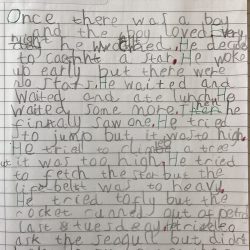 Once there was a boy
and the boy loved very
night he wached. He decide
to caeght a star. He woke
up early but there were
no stars. He waited and
waited and ate lunch. He
waited some more. Then he
finally saw one. He tried
to jump but it was to high.
He tried to climb a tree
but it was too high. He tried
to fetch the star but the
life belt was to heavy.
He tried to fly but the
rocket runned out of petr
last tuesday. tried to
ask the seagull but didn